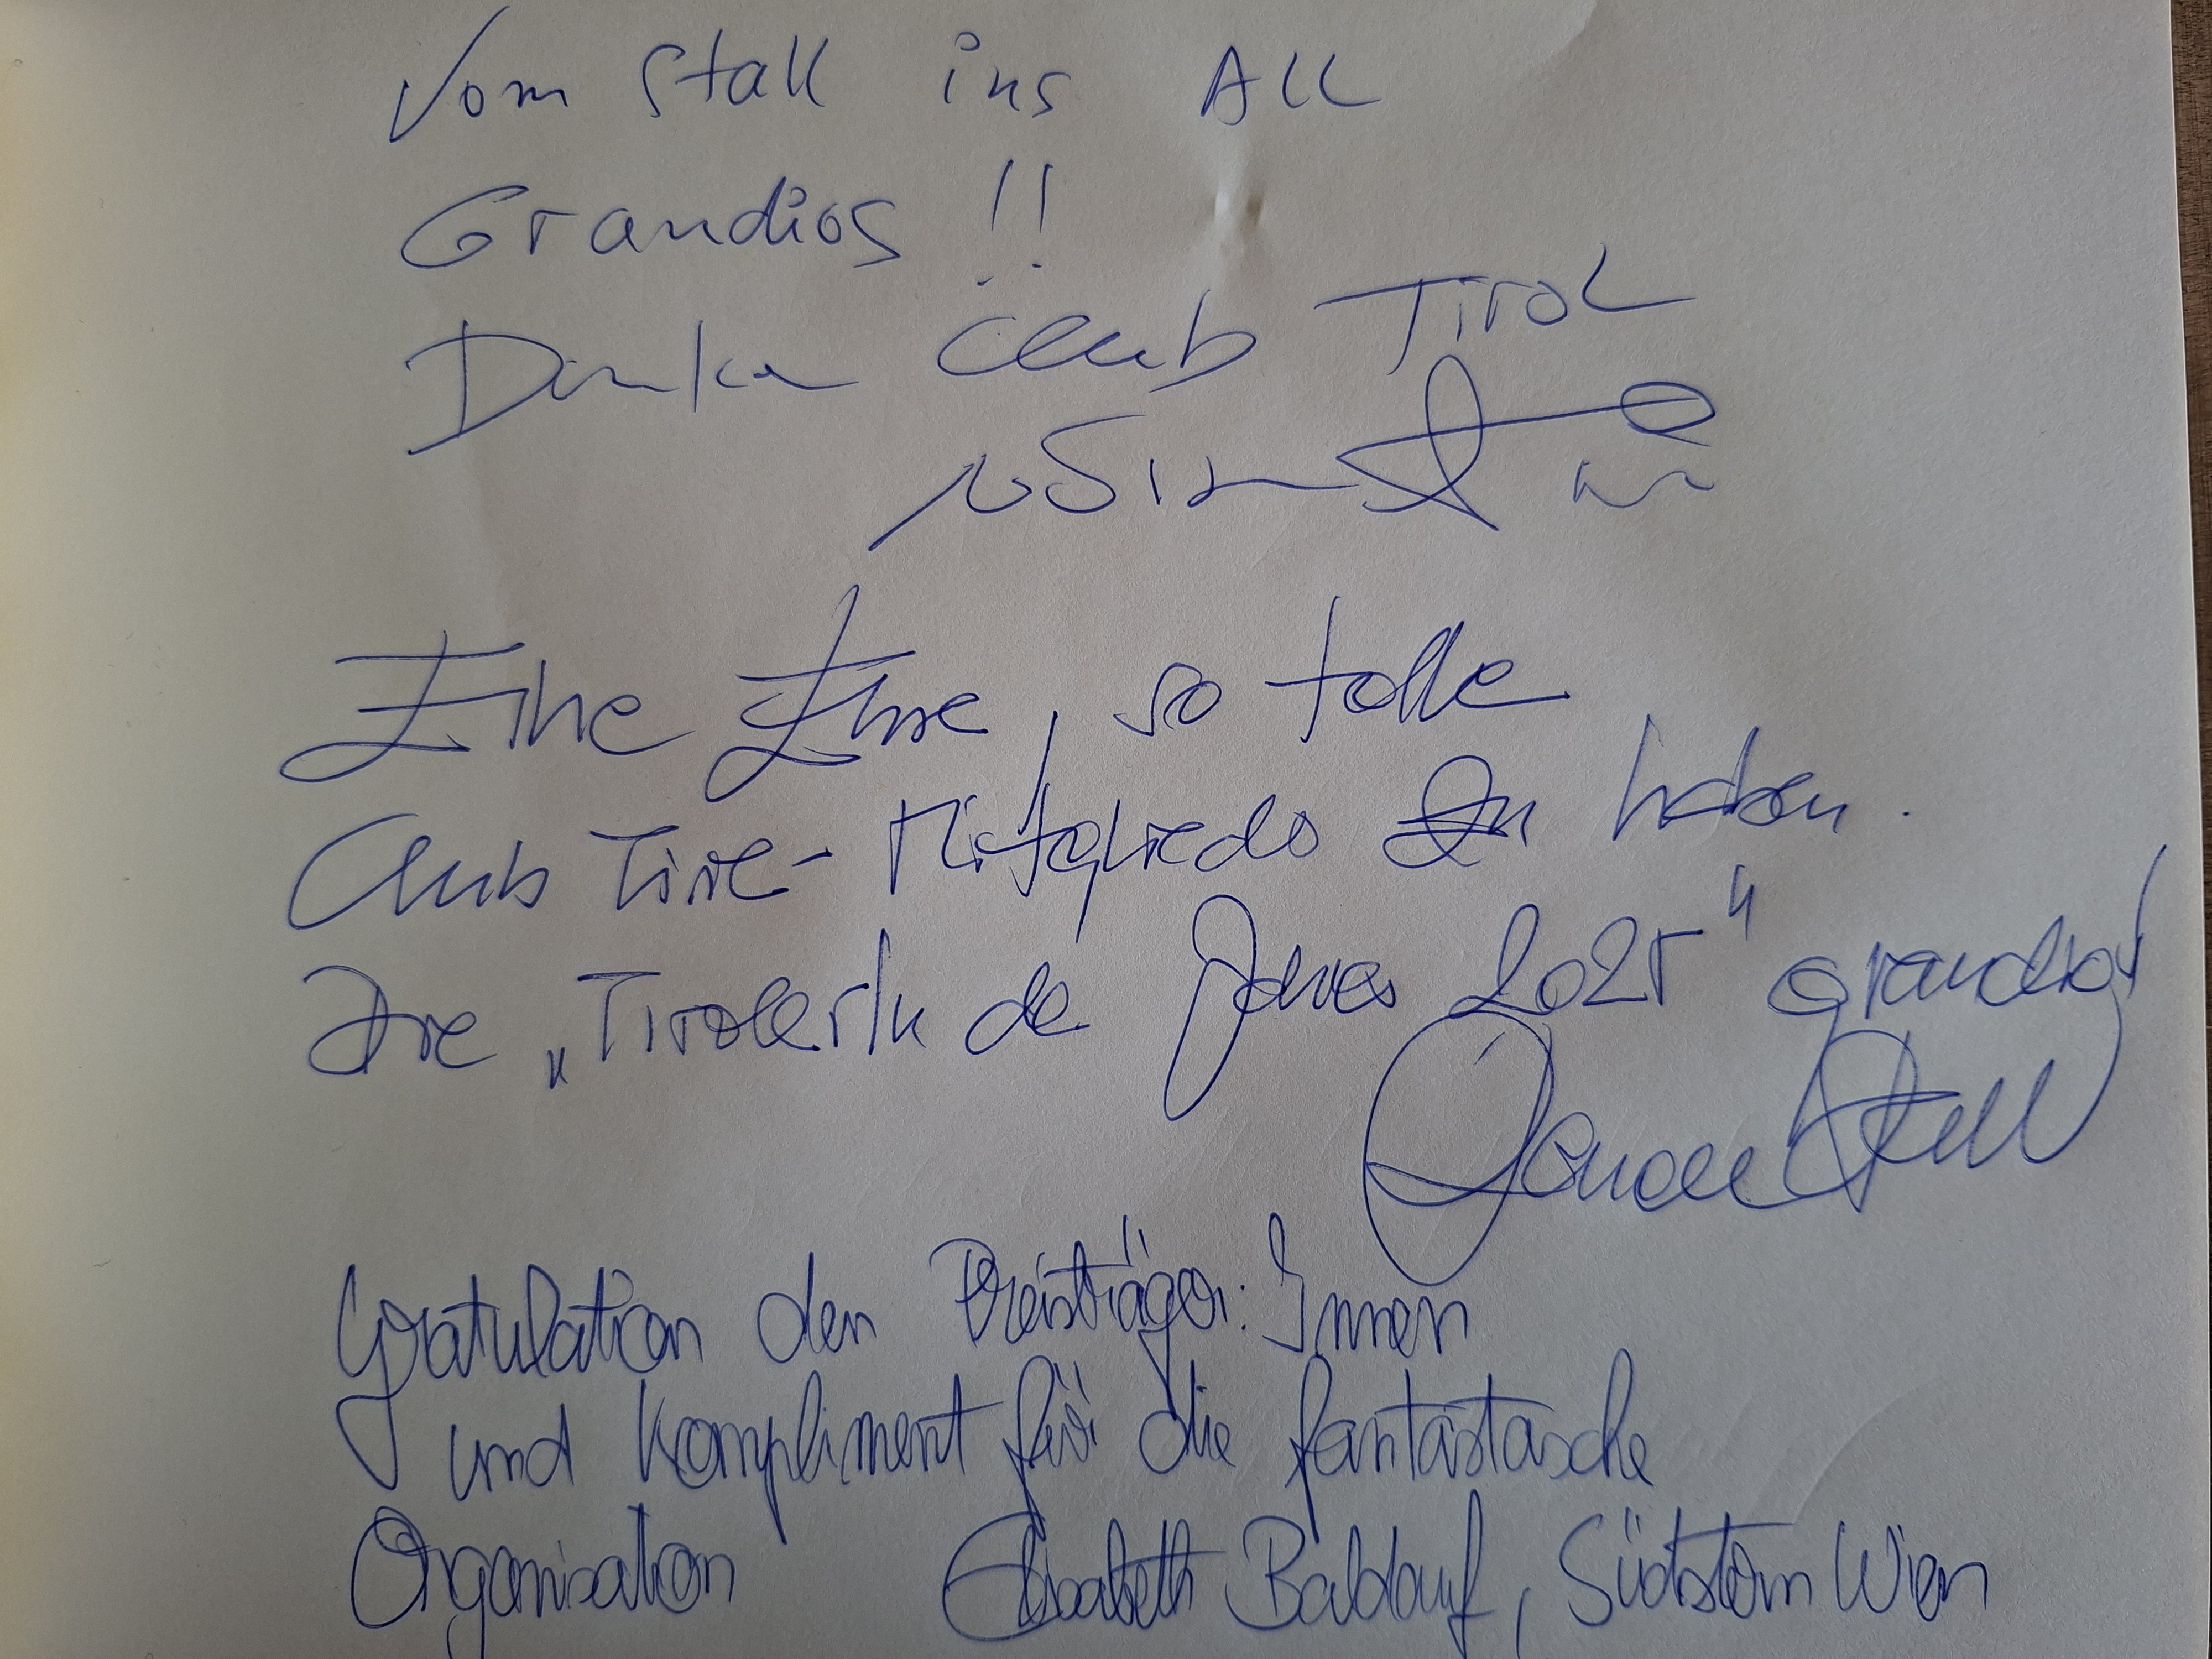 Vom Stall ins All
Grandios !!
Danke Club Tirol
Eine Ehre, so tolle
Club Tirol-Mitglieds zu haben.
Die „Tirolerin des Jahres 2025" grandios!
Gratulation den Preisträger:Innen
und Kompliment für die fantastische
Organisation Elisabeth Baldauf, Südstern Wien